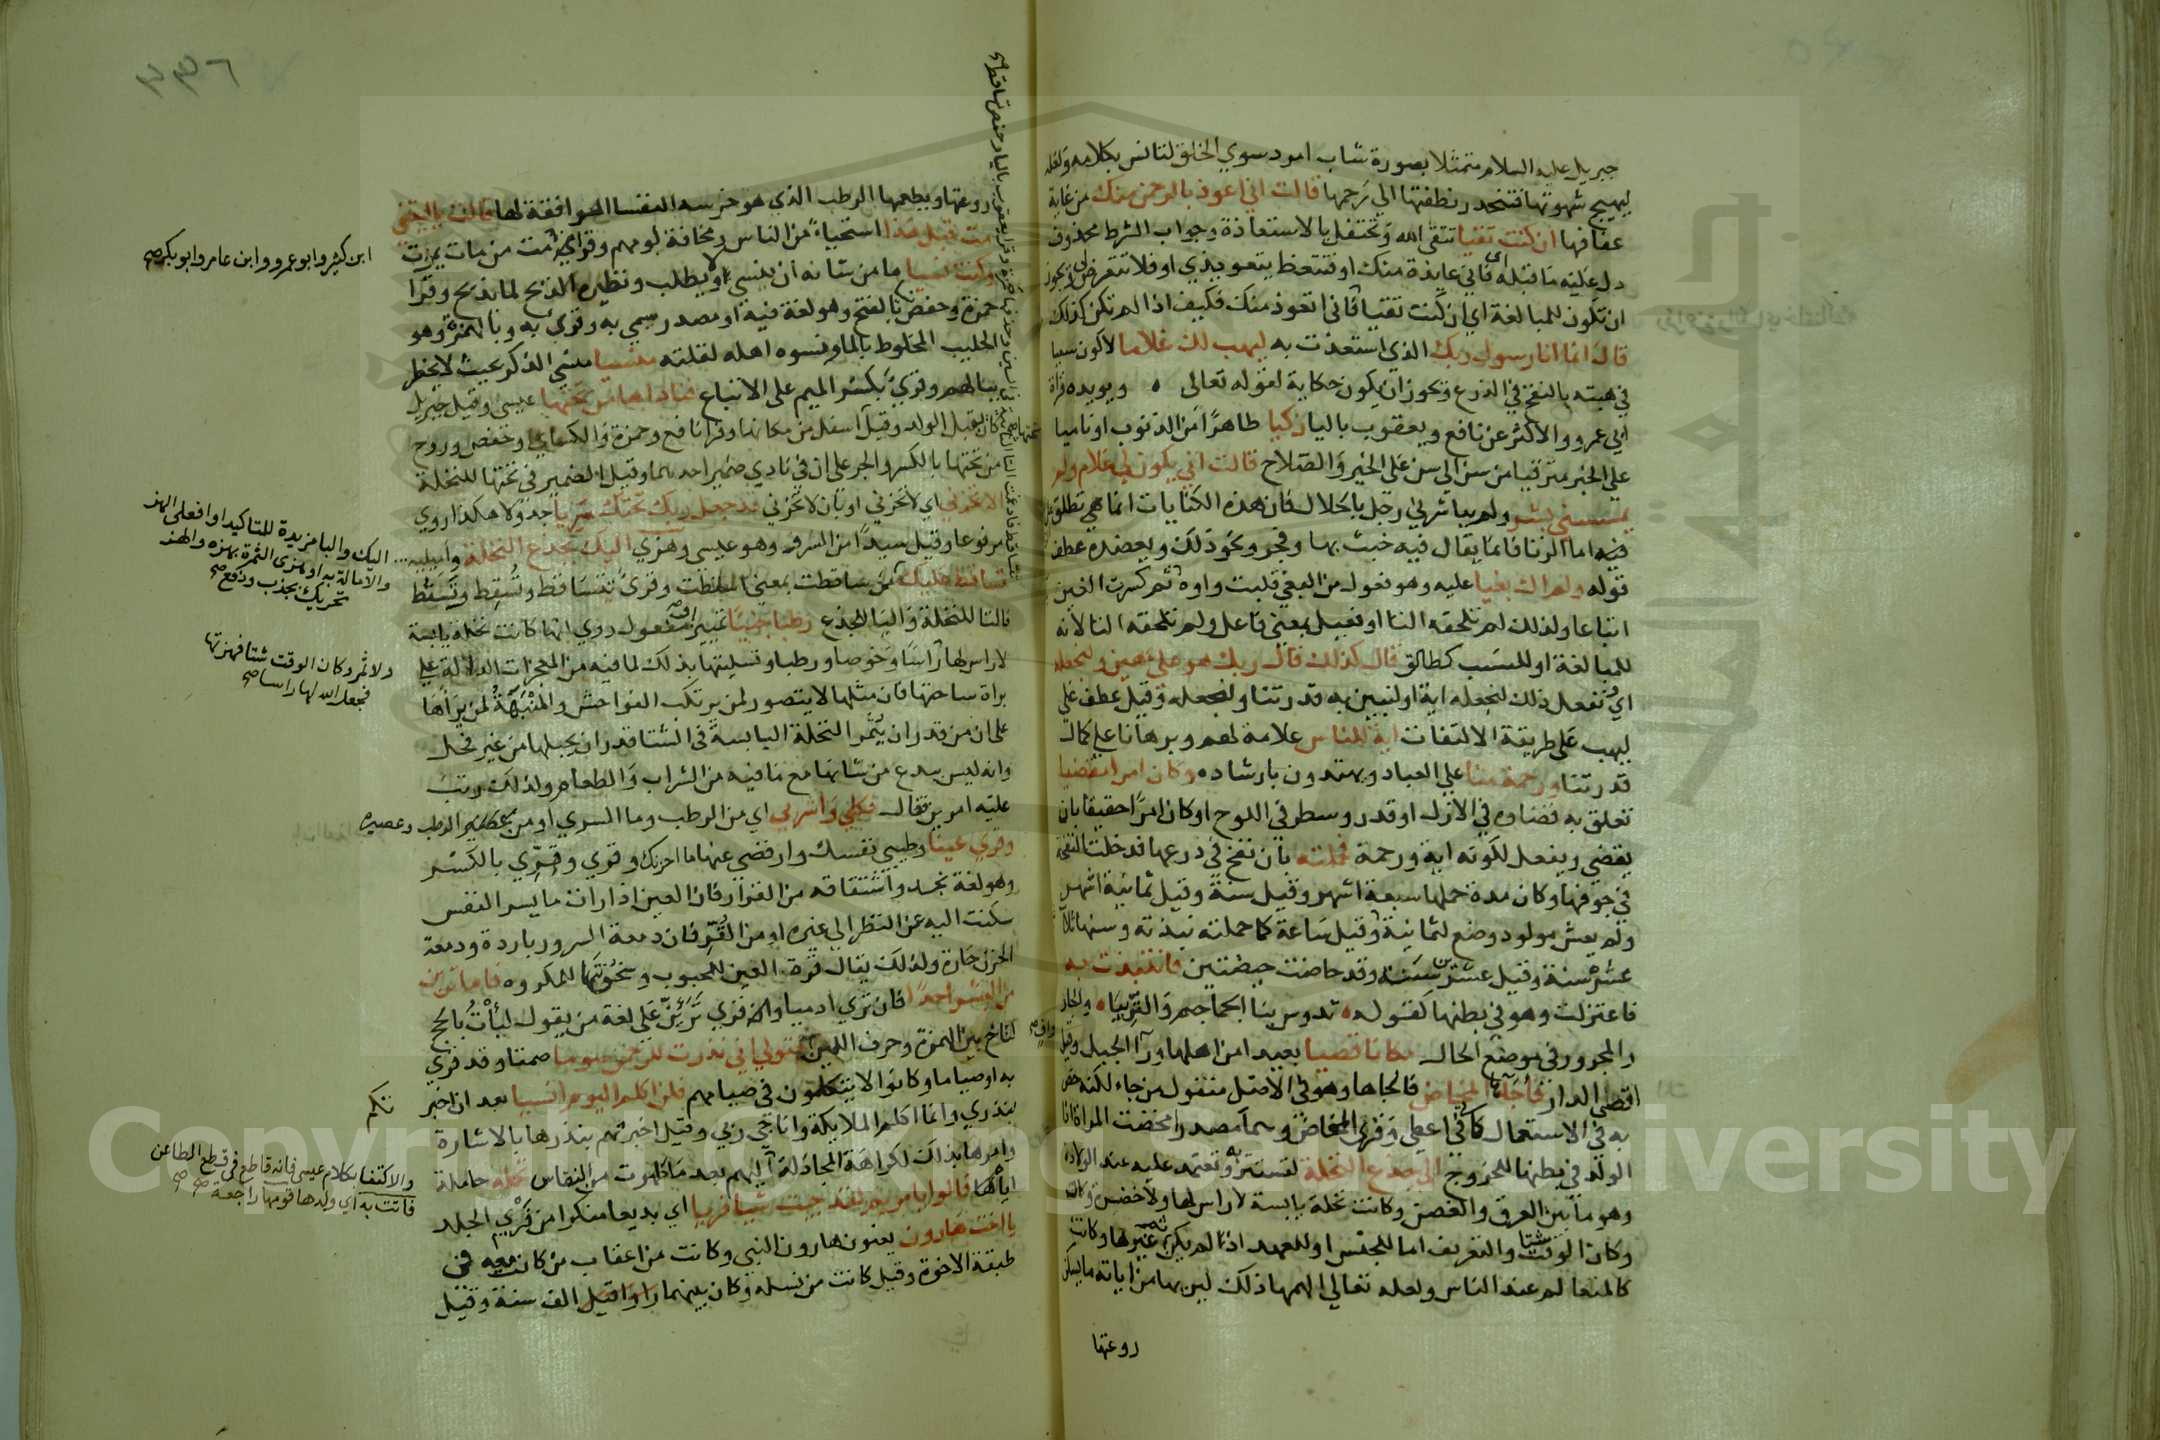 جبريل عليه السلام متمثلا بصورة شاب امرد سوي الخلق لتانس بكلامه ولعله
ليهيج شهوتها فتنحدر نطفتها الي رحمها قالت اني اعوذ بالرحمن منك من غاية
عفافها ان كنت تقيا تتقي الله وتحتفل بالاستعاذة وجواب الشرط محذوف
دل عليه ما قبله اي فاني عايذة منك او فتتعظ بتعويذي او فلا تتعرض لي ويجوز
ان تكون للمبالغة اي ان كنت تقيا فاني اتعوذ منك فكيف اذا لم تكن كذلك
قال انما انا رسول ربك الذي استعذت به ليهب لك غلاما لاكون سببا
في هبته بالنفخ في الدرع ويجوز ان يكون حكاية لقوله تعالى ويويده قراة
ابي عمرو والاكثر عن نافع ويعقوب باليا زكيا طاهرا من الذنوب او ناميا
علي الخير مترقيا من سن الي سن علي الخير والصلاح قالت اني يكون لي غلام ولم
يمسسني بشر ولم يباشرني رجل بالحلال فان هذه الكنايات انما هي تطلق
فيه اما الزنا فانما يقال فيه خبث بها وفجر ونحو ذلك ويعضده عطف
قوله ولم اك بغيا عليه وهو فعول من البغي قلبت واوه ثم كسرت الغين
اتباعا ولذلك لم تلحقه التا او فعيل بمعني فاعل ولم تلحقه التا لانه
للمبالغة او للنسب كطالق قال كذلك قال ربك هو علي هين ولنجعله
اي ونفعل ذلك لنجعله اية او لنبين به قدرتنا ولنجعله وقيل عطف علي
ليهب علي طريقة الالتفات اية للناس علامة لهم وبرهانا علي كمال
قدرتنا ورحمة منا علي العباد ويهتدون بارشاده وكان امرا مقضيا
تعلق به قضاوه في الازل او قدر وسطر في اللوح او كان امرا حقيقا بان
يقضي ويفعل لكونه اية ورحمة فحملته بان نفخ في درعها فدخلت النفخة
في جوفها وكان مدة حملها سبعة اشهر وقيل ستة وقيل ثمانية اشهر
ولم يعش مولود وضع لثمانية وقيل ساعة كما حملته نبذته وسنها ثلاث
عشرة سنة وقيل عشر سنين وقد حاضت حيضتين فانتبذت به
فاعتزلت وهو في بطنها كقوله تدوس بنا الجماجم والتريبا والجار
والمجرور في موضع الحال مكانا قصيا بعيدا من اهلها ورآ الجبل وقيل
اقصي الدار فاجآها المخاض فالجاها وهو في الاصل منقول من جاء لكنه خص
به في الاستعمال كاتي في اعطي وقري المخاض وهما مصدر مخضت المراة اذا
الولد في بطنها للخروج الي جذع النخلة لتستتر به وتعتمد عليه عند الولادة
وهو ما بين العرق والغصن وكانت نخلة يابسة لا راس لها ولا خضرة
وكان الوقت شتا والتعريف اما للجنس او للعهد اذ لم يكن ثم غيرها وكانت
كالمتعالم عند الناس ولعله تعالي الهمها ذلك ليريها من اياته ما يسكن
روعتها
روعتها ويطعمها الرطب الذي هو خرسه النفسا الموافقة لها قالت يا ليتني
مت قبل هذا استحياء من الناس ومخافة لومهم وقرا مت من مات يموت
وكنت نسيا ما من شانه ان ينسي ولا يطلب ونظيره الذبح لما يذبح وقرا
حمزة وحفص بالفتح وهو لغة فيه او مصدر سمي به وقري به وبالهمزة وهو
الحليب المخلوط بالما ينسوه اهله لقلته منسيا منسي الذكر بحيث لا يخطر
ببالهم وقري بكسر الميم على الاتباع فناداها من تحتها عيسي وقيل جبريل
كان يقبل الولد وقيل اسفل من مكانها وقرا نافع وحمزة والكساي وحفص وروح
من تحتها بالكسر والجر علي ان في نادي ضمير احدهما وقيل الضمير في تحتها للنخلة
الا تحزني اي لا تحزني او بان لا تحزني قد جعل ربك تحتك سريا جدولا هكذا روي
مرفوعا وقيل سيدا من السرو وهو عيسي وهزي اليك بجذع النخلة واميليه
تساقط عليك من ساقطت بمعني اسقطت وقري تتساقط وتسقط وتسقط
فالتا للنخلة واليا للجذع رطبا جنيا تمييز او مفعول روي انها كانت نخلة يابسة
لا راس لها راسا وخوصا ورطبا وتسليتها بذلك لما فيه من المعجزات الدالة علي
براة ساحتها فان مثلها لا يتصور لمن يرتكب الفواحش والمنبهة لمن يراها
علي ان من قدر ان يثمر النخلة اليابسة في الشتا قدر ان يحبلها من غير فحل
وانه ليس ببدع من شانها مع ما فيه من الشراب والطعام ولذلك رتب
عليه امرين فقال فكلي واشربي اي من الرطب وما السري او من الرطب وعصيره
وقري عينا وطيبي نفسك وارفضي عنها ما احزنك وقري وقري بالكسر
وهو لغة نجد واشتقاقه من القرار فان العين اذا رات ما يسر النفس
سكنت اليه عن النظر الي غيره او من القر فان دمعة السرور باردة ودمعة
الحزن حارة ولذلك يقال قرة العين للمحبوب وسخنتها للمكروه فاما ترين
من البشر احدا فان تري ادميا وقري ترئن علي لغة من يقول لبأت بالحج
لتاخ بين الهمزة وحرف اللين فقولي اني نذرت للرحمن صوما صمتا وقد قري
به او صياما وكانوا لا يتكلمون في صيامهم فلن اكلم اليوم انسيا بعد ان اخبر
بنذري وانما اكلم الملايكة واناجي ربي وقيل اخبرتهم بنذرها بالاشارة
وامرها بذلك لكراهة المجادلة اليهم بعد ما طهرت من النفاس تحمله حاملة
اياه قالوا يا مريم لقد جيت شيا فريا اي بديعا منكرا من فري الجلد
يا اخت هارون يعنون هارون النبي وكانت من اعقاب من كان معه في
طبقة الاخوة وقيل كانت من نسله وكان بينهما الف سنة وقيل
ابن كثير وابو عمرو وابن عامر وابو بكر صح
اليك والبا مزيدة للتاكيد او افعلي الهز
والامالة به او هزي الثمرة بهزه والهز
تحريك بجذب ودفع صح
ولا ثمر وكان الوقت شتا فهزتها
فجعل الله لها راسا صح
نتكم
والاكتفا بكلام عيسي فانه قاطع في قطع الطاعن
فاتت به اي ولدها قومها راجعة
٣٣٦
Copyright © King Saud University